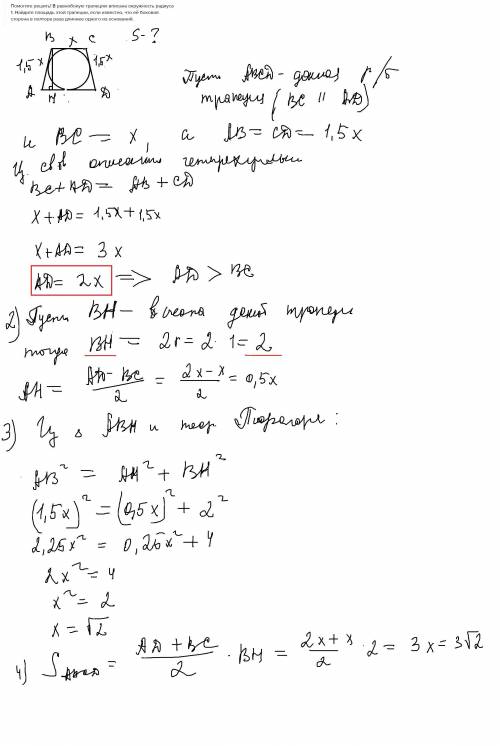 Помогите решить! В равнобокую трапецию вписана окружность радиуса
1. Найдите площадь этой трапеции, если известно, что её боковая
сторона в полтора раза длиннее одного из оснований.
S-?
B x C
1,5x 1,5x
A H D
Пусть ABCD - данная р/б
трапеция (BC || AD)
и BC = x, а AB = CD = 1,5x
Из св
BC + AD = AB + CD
x + AD = 1,5x + 1,5x
x + AD = 3x
AD = 2x => AD > BC
2) Пусть BH - высота данной трапеции
тогда BH = 2r = 2 · 1 = 2
AH = AD - BC / 2 = 2x - x / 2 = 0,5x
3) Из Δ ABH и теор. Пифагора:
AB² = AH² + BH²
(1,5x)² = (0,5x)² + 2²
2,25x² = 0,25x² + 4
2x² = 4
x² = 2
x = √2
4) S ABCD = AD + BC / 2 · BH = 2x + x / 2 · 2 = 3x = 3√2